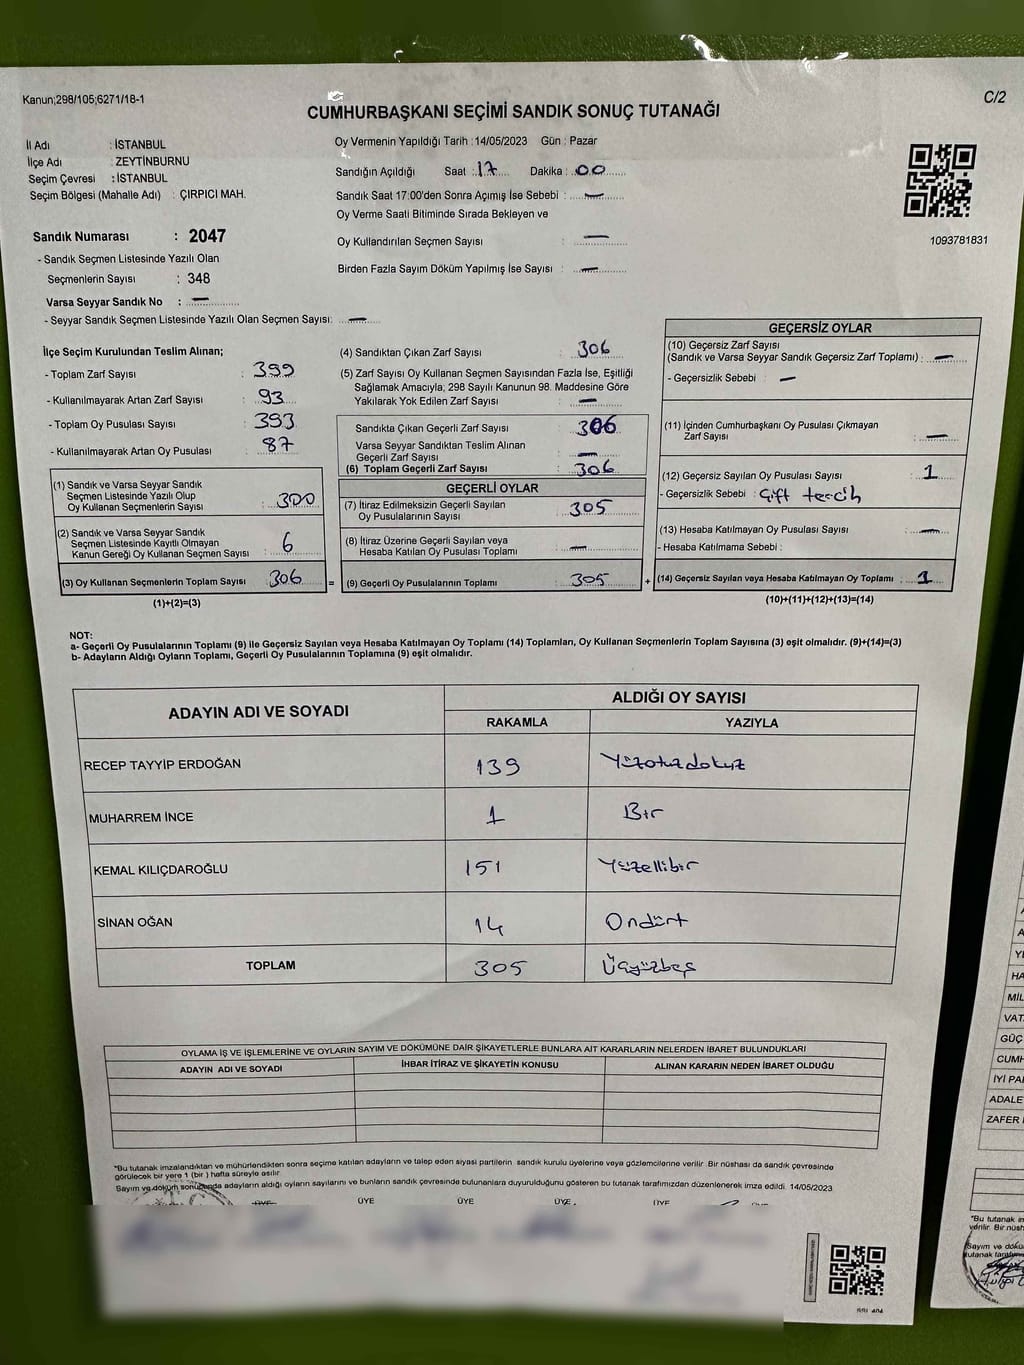 Kanun;298/105;6271/18-1
C/2
CUMHURBAŞKANI SEÇİMİ SANDIK SONUÇ TUTANAĞI
İl Adı : İSTANBUL
İlçe Adı : ZEYTİNBURNU
Seçim Çevresi : İSTANBUL
Seçim Bölgesi (Mahalle Adı) : ÇIRPICI MAH.
Oy Vermenin Yapıldığı Tarih :14/05/2023 Gün : Pazar
Sandığın Açıldığı Saat : 17 Dakika : 00
Sandık Saat 17:00'den Sonra Açımış İse Sebebi : —
Oy Verme Saati Bitiminde Sırada Bekleyen ve
Oy Kullandırılan Seçmen Sayısı : —
Birden Fazla Sayım Döküm Yapılmış İse Sayısı : —
1093781831
Sandık Numarası : 2047
- Sandık Seçmen Listesinde Yazılı Olan
Seçmenlerin Sayısı : 348
Varsa Seyyar Sandık No : —
- Seyyar Sandık Seçmen Listesinde Yazılı Olan Seçmen Sayısı: —
İlçe Seçim Kurulundan Teslim Alınan;
- Toplam Zarf Sayısı : 399
- Kullanılmayarak Artan Zarf Sayısı : 93
- Toplam Oy Pusulası Sayısı : 393
- Kullanılmayarak Artan Oy Pusulası : 87
(1) Sandık ve Varsa Seyyar Sandık
Seçmen Listesinde Yazılı Olup
Oy Kullanan Seçmenlerin Sayısı : 300
(2) Sandık ve Varsa Seyyar Sandık
Seçmen Listesinde Kayıtlı Olmayan
Kanun Gereği Oy Kullanan Seçmen Sayısı : 6
(3) Oy Kullanan Seçmenlerin Toplam Sayısı 306 =
(1)+(2)=(3)
(4) Sandıktan Çıkan Zarf Sayısı : 306
(5) Zarf Sayısı Oy Kullanan Seçmen Sayısından Fazla İse, Eşitliği
Sağlamak Amacıyla; 298 Sayılı Kanunun 98. Maddesine Göre
Yakılarak Yok Edilen Zarf Sayısı : —
Sandıkta Çıkan Geçerli Zarf Sayısı : 306
Varsa Seyyar Sandıktan Teslim Alınan
Geçerli Zarf Sayısı : —
(6) Toplam Geçerli Zarf Sayısı : 306
GEÇERLİ OYLAR
(7) İtiraz Edilmeksizin Geçerli Sayılan
Oy Pusulalarının Sayısı : 305
(8) İtiraz Üzerine Geçerli Sayılan veya
Hesaba Katılan Oy Pusulası Toplamı : —
(9) Geçerli Oy Pusulalarının Toplamı : 305 +
GEÇERSİZ OYLAR
(10) Geçersiz Zarf Sayısı
(Sandık ve Varsa Seyyar Sandık Geçersiz Zarf Toplamı) : —
- Geçersizlik Sebebi : —
(11) İçinden Cumhurbaşkanı Oy Pusulası Çıkmayan
Zarf Sayısı : —
(12) Geçersiz Sayılan Oy Pusulası Sayısı : 1
- Geçersizlik Sebebi : Çift tercih
(13) Hesaba Katılmayan Oy Pusulası Sayısı : —
- Hesaba Katılmama Sebebi :
(14) Geçersiz Sayılan veya Hesaba Katılmayan Oy Toplamı : 1
(10)+(11)+(12)+(13)=(14)
NOT:
a- Geçerli Oy Pusulalarının Toplamı (9) ile Geçersiz Sayılan veya Hesaba Katılmayan Oy Toplamı (14) Toplamları, Oy Kullanan Seçmenlerin Toplam Sayısına (3) eşit olmalıdır. (9)+(14)=(3)
b- Adayların Aldığı Oyların Toplamı, Geçerli Oy Pusulalarının Toplamına (9) eşit olmalıdır.
ADAYIN ADI VE SOYADI ALDIĞI OY SAYISI
RAKAMLA YAZIYLA
RECEP TAYYİP ERDOĞAN 139 Yüzotuzdokuz
MUHARREM İNCE 1 Bir
KEMAL KILIÇDAROĞLU 151 Yüzellibir
SİNAN OĞAN 14 Ondört
TOPLAM 305 Üçyüzbeş
OYLAMA İŞ VE İŞLEMLERİNE VE OYLARIN SAYIM VE DÖKÜMÜNE DAİR ŞİKAYETLERLE BUNLARA AİT KARARLARIN NELERDEN İBARET BULUNDUKLARI
ADAYIN ADI VE SOYADI İHBAR İTİRAZ VE ŞİKAYETİN KONUSU ALINAN KARARIN NEDEN İBARET OLDUĞU
*Bu tutanak imzalandıktan ve mühürlendikten sonra seçime katılan adayların ve talep eden siyasi partilerin sandık kurulu üyelerine veya gözlemcilerine verilir. Bir nüshası da sandık çevresinde
görülecek bir yere 1 (bir) hafta süreyle asılır.
Sayım ve döküm sonucunda adayların aldığı oyların sayılarını ve bunların sandık çevresinde bulunanlara duyurulduğunu gösteren bu tutanak tarafımızdan düzenlenerek imza edildi. 14/05/2023
ÜYE ÜYE ÜYE ÜYE ÜYE
MİL
VAT
GÜÇ
CUMH
İYİ PA
ADALE
ZAFER
*Bu tutanak im
verilir. Bir nüsh
Sayım ve dökü
tutanak taraf